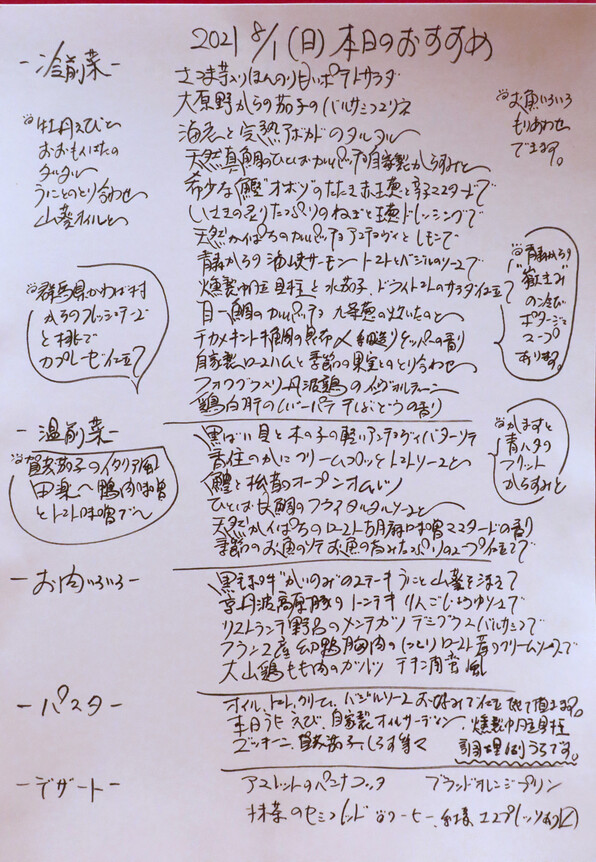 2021 8/1 (日) 本日のおすすめ
-冷前菜-
さつま芋入りほんのり甘いポテトサラダ
大原野からの茄子のバルサミコマリネ
海老と完熟アボカドのタルタル
天然真鯛のひとしおカルパッチョ自家製からすみと
希少な鰹"オボソ"のたたき赤玉葱と辛子マスタードで
しまさのたたりたっぷりのねぎと玉葱ドレッシングで
天然かんぱちのカルパッチョ アンチョヴィとレモンで
青森からの海峡サーモン トマトとバジルのソースで
燻製帆立貝柱と水茄子、ドライトマトのサラダ仕立て
目一鯛のカルパッチョ 九条葱の炊いたのと
チカメキントキ鯛の昆布〆 細造りケッパーの香り
自家製ロースハムと季節の果実とのとり合わせ
フォアグラスリ丹波鶏のインヴォルティーニ
鶏白肝のムースパテ干しぶどうの香り
牡丹えびと
おおもんはたの
タルタル
うにとのとり合わせ
山葵オイルと
群馬県かわば村
からのフレッシュチーズ
と桃で
カプレーゼ仕立て
お魚いろいろ
もりあわせ
できます。
青森からの
"嶽きみ"
の冷たい
ポタージュ
スープ
あります。
-温前菜-
黒ばい貝と木の子の軽いアンチョヴィバターソテ
香住のかにクリームコロッケ トマトソースと
鱧と松茸のオープンオムレツ
ひとしお甘鯛のフリット タルタルソースと
天然かんぱちのロースト 胡麻味噌マスタードの香り
季節のお魚のソテ お魚の旨みたっぷりのスープ仕立てで
賀茂茄子のイタリア風
田楽〜鴨肉味噌
とトマト味噌で〜
かますと
青ハタの
フリット
からすみと
-お肉いろいろ-
黒毛和牛"かいのみ"のステーキ うにと山葵を添えて
京丹波高原豚のトンテキ りんごしょうゆソースで
リストランテ野呂のメンチカツ デミグラスバルサミコで
フランス産 幼鴨胸肉のしっとりロースト茸のクリームソースで
大山鶏もも肉のカツレツ チキン南蛮風
-パスタ-
オイル、トマト、クリーム、バジルソースお好みで仕立させて頂きます。
本日うに えび、自家製オイルサーディン、燻製帆立貝柱
ズッキーニ、賀茂茄子、しらす等々 調理ほうろうです。
-デザート-
アプリコットのパンナコッタ ブラッドオレンジプリン
抹茶のセミフレッド コーヒー、紅茶、エスプレッソあり〼